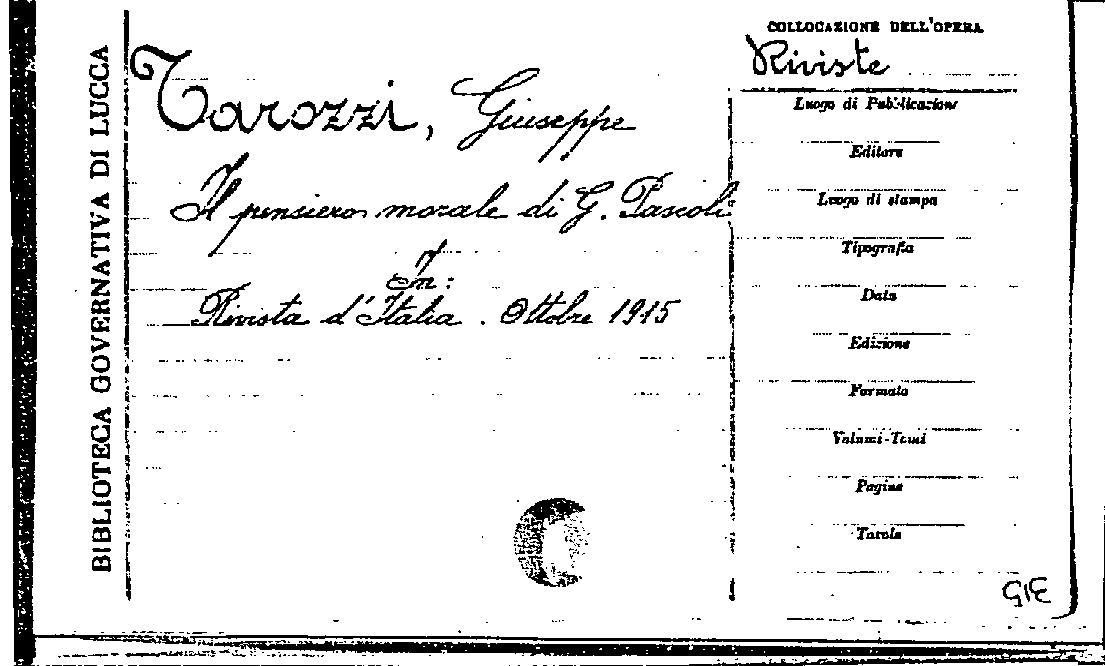 BIBLIOTECA GOVERNATIVA DI LUCCA
Tarozzi, Giuseppe
Il pensiero morale di G. Pascoli
In:
Rivista d'Italia. Ottobre 1915
COLLOCAZIONE DELL'OPERA
Riviste
Luogo di Pubblicazione
Editore
Luogo di stampa
Tipografia
Data
Edizione
Formato
Volumi-Tomi
Pagine
Tavole